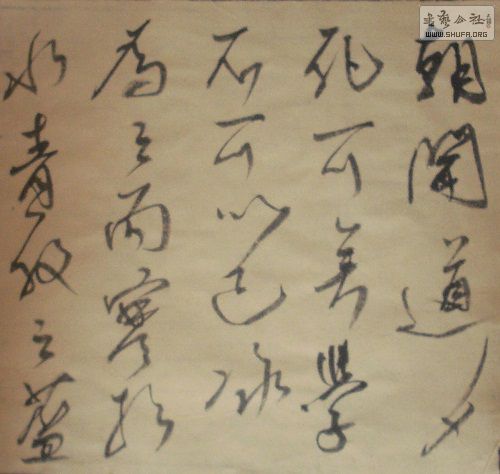 朝聞道夕
死可矣學
不可以已冰
為之而寒於
水青取之藍
書藝公社
WWW.SHUFA.ORG